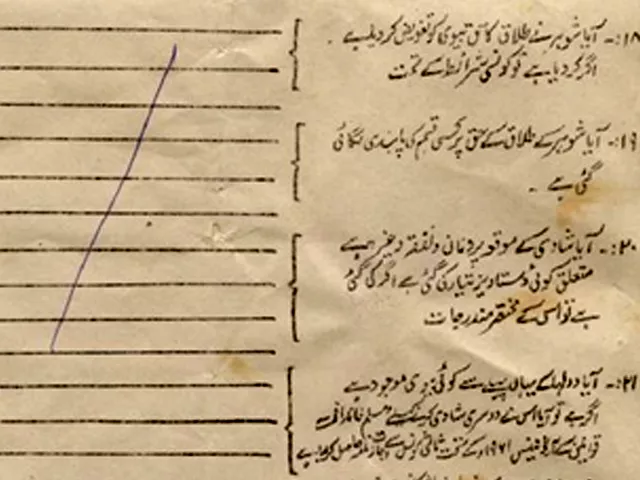 ۱۸:- آیا شوہر نے طلاق کا حق بیوی کو تفویض کر دیا ہے ۔
اگر کر دیا ہے تو کونسی شرائط کے تحت
۱۹:- آیا شوہر کے طلاق کے حق پر کسی قسم کی پابندی لگائی
گئی ہے ۔
۲۰:- آیا شادی کے موقع پر و نفقہ وغیرہ سے
متعلق کوئی دستاویز تیار کی گئی ہے اگر کی گئی
ہے تو اس کے مختصر مندرجات
۲۱:- آیا دولہا کے یہاں پہلے سے کوئی بیوی موجود ہے
اگر ہے تو آیا اس نے دوسری شادی کرنے کیلئے مسلم
قوانین کے ۱۹۶۱ء کے تحت ثالثی کونسل سے اجازت نامہ حاصل کر لیا ہے